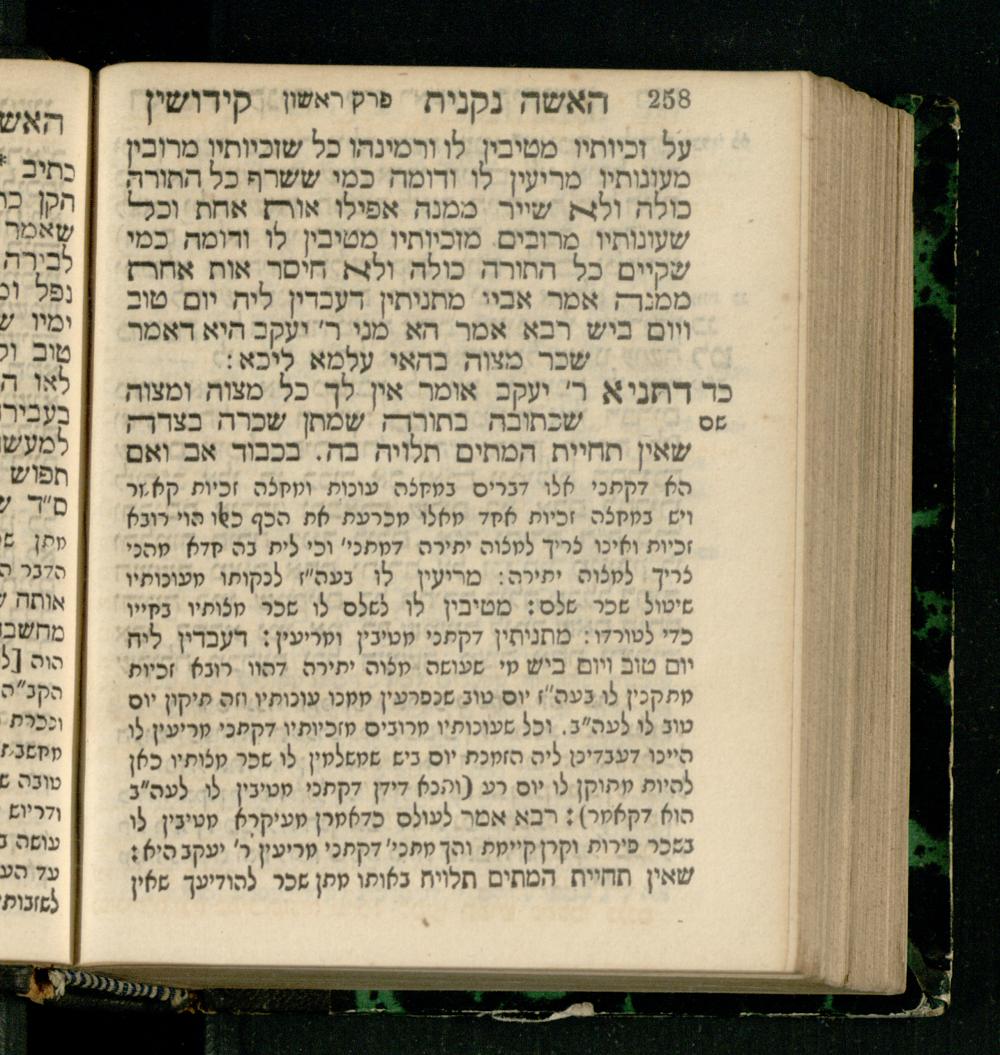 258 האשה נקנית פרק ראשון קידושין
על זכיותיו מטיבין לו ורמינהו כל שזכיותיו מרובין
מעונותיו מריעין לו ודומה כמי ששרף כל התורה
כולה ולא שייר ממנה אפילו אות אחת וכל
שעונותיו מרובים מזכיותיו מטיבין לו ודומה כמי
שקיים כל התורה כולה ולא חיסר אות אחת
ממנה אמר אביי מתניתין דעבדין ליה יום טוב
ויום ביש רבא אמר הא מני ר' יעקב היא דאמר
שכר מצוה בהאי עלמא ליכא:
כד דתניא ר' יעקב אומר אין לך כל מצוה ומצוה
שם שכתובה בתורה שמתן שכרה בצדה
שאין תחיית המתים תלויה בה. בכבוד אב ואם
הא דקתני אלו דברים במקצה עונות ומקצה זכיות קאמר
ויש במקצה זכיות אחד מאלו מכרעת את הכף כאלו הוי רובא
זכיות ואינו צריך למצוה יתירה דמתני' וכי לית בה חדא מהני
צריך למצוה יתירה: מריעין לו בעה"ז לנקותו מעונותיו
שיטול שכר שלם: מטיבין לו לשלם לו שכר מצותיו בחייו
כדי לטורדו: מתניתין דקתני מטיבין ומריעין: דעבדין ליה
יום טוב ויום ביש מי שעושה מצוה יתירה דהוו רובא זכיות
מתקנין לו בעה"ז יום טוב שנפרעין ממנו עונותיו וזה תיקון יום
טוב לו לעה"ב. וכל שעונותיו מרובים מזכיותיו דקתני מריעין לו
היינו דעבדינן ליה הזמנת יום ביש שמשלמין לו שכר מצותיו כאן
להיות מתוקן לו יום רע (והכא דידן דקתני מטיבין לו לעה"ב
הוא דקאמר): רבא אמר לעולם כדאמרן מעיקרא מטיבין לו
בשכר פירות וקרן קיימת והך מתני' דקתני מריעין ר' יעקב היא:
שאין תחיית המתים תלויה באותו מתן שכר להודיעך שאין
האש
כתיב *
הקן כת
שאמר
לבירה
נפל ומ
ימיו ש
טוב ול
לאו ה
בעבירה
למעש
תפוש
ס"ד ש
מתן ש
הדבר ה
אותה ש
מחשב
הוה [ל
הקב"ה
ונכרת
מחשבת
טובה ש
ודריוש
עושה ב
עד הע
לשזבות